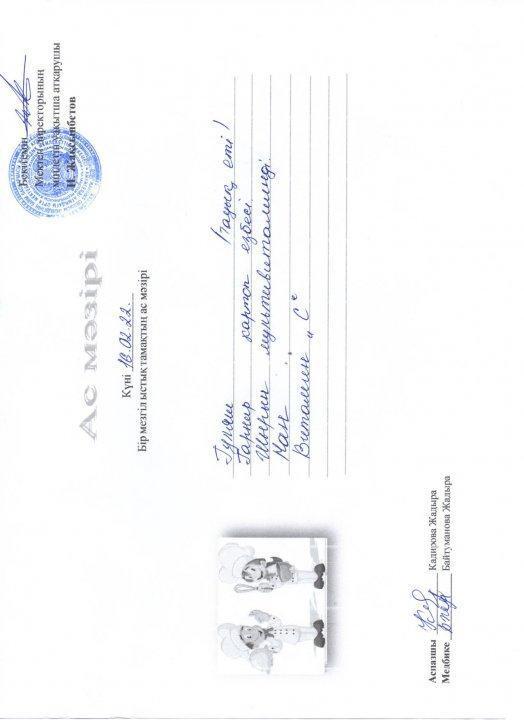 Бекітемін
Мектеп директорының
міндетін уақытша атқарушы
Н. Жақсынбетов
Ас мәзірі
Күні 18.02.22.
Бір мезгіл ыстық тамақтың ас мәзірі
Гуляш /тауық еті/
Гарнир картоп езбесі
Шырын мультивитаминді
Нан
Витамин "С"
Аспазшы Кадирова Жадыра
Медбике Байтуманова Жадыра